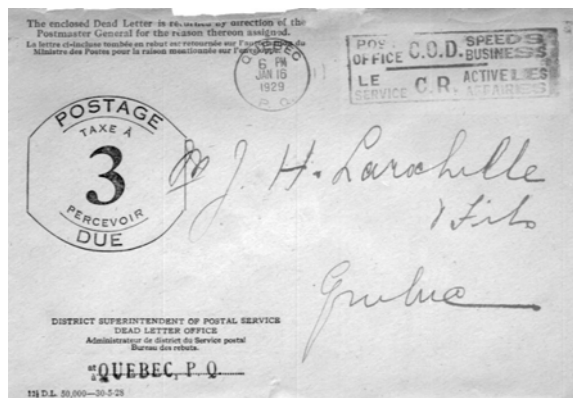 The enclosed Dead Letter is returned by direction of the
Postmaster General for the reason thereon assigned.
La lettre ci-incluse tombée en rebut est retournée sur l'autorisation du
Ministre des Postes pour la raison mentionnée sur l'enveloppe.
QUEBEC
6 PM
JAN 16
1929
P. Q.
POST OFFICE C.O.D. SPEEDS BUSINESS
LE SERVICE C.R. ACTIVE LES AFFAIRES
POSTAGE
TAXE À
3
PERCEVOIR
DUE
M J. H. Larochelle
& Fils
Quebec
DISTRICT SUPERINTENDENT OF POSTAL SERVICE
DEAD LETTER OFFICE
Administrateur de district du Service postal
Bureau des rebuts.
at
à QUEBEC, P. Q.
D.L. 50,000—30-5-28